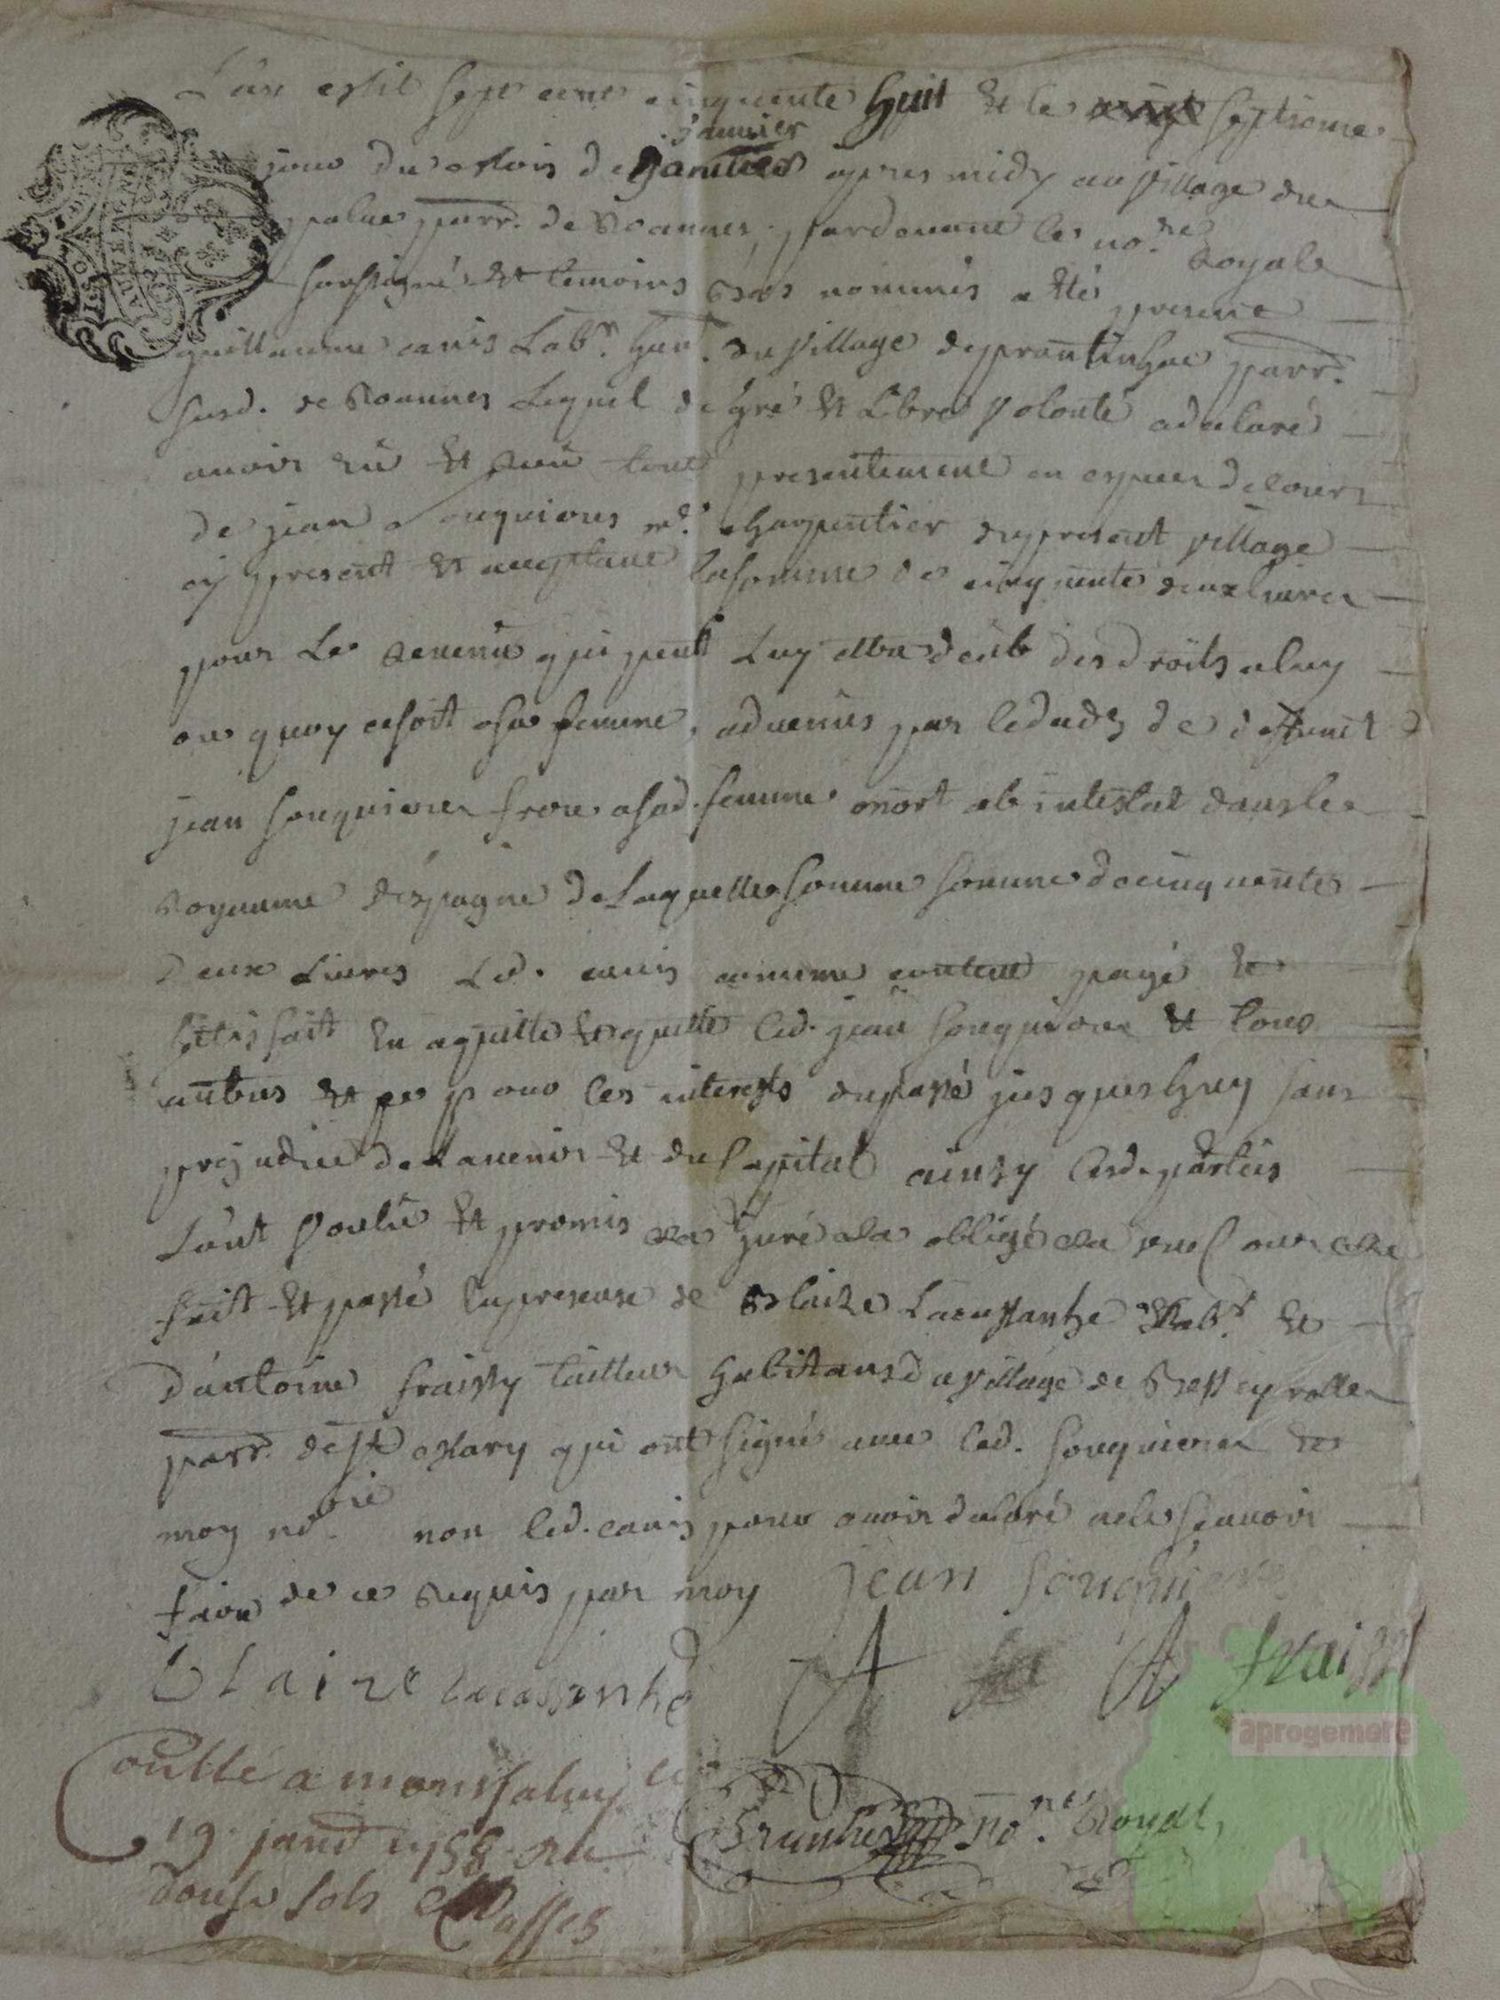 L'an mil sept cent cinquante huit et le septieme
janvier
jour du mois de apres midy au village du
palue parr. de Roannes, pardevant le no.re Royale
soussigné et temoins bas nommés a été present
guillaume canis Lab.r han. du village de prantinhac parr.
susd. de Roannes Lequel de gré et Libre volonté a declaré
avoir eu et receu tout presentement en especes de cours
de jean Souquieres m.e charpentier du present village
cy present et acceptant la somme de cinquante deux livres
pour Le revenu qui peut Luy etre deub des droits a luy
ou quoy que soit a sa femme, advenus par le decés de deffunt
jean Souquieres frere a sad. femme mort ab intestat dans le
Royaume d'espagne de Laquelle somme somme de cinquante
deux Livres Led. canis comme contant payé et
satisfait en a quitté et quitte led. jean Souquieres et tous
autres et ce pour les interests du passé jusques huy sans
prejudice de L'avenir et du Capital ainsy lesd. parties
L'ont voulu et promis juré obligé
fait et passé en presence de Blaize Lacassanhe Lab.r et
d'antoine fraissy tailleur habitans du village de Besseyrolles
parr. de St Mary qui ont signé avec led. Souquieres et
moy no.re non led. canis pour avoir declaré ne le scavoir
faire de ce requis par moy jean souquieres
blaize lacassanhe A fraissy
Conttlé a montsalvy le
19 janv 1758 Reçu
douse sols
no.re Royal
aprogemere